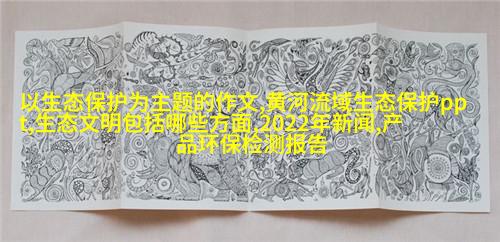 以生态保护为主题的作文,黄河流域生态保护pp
t,生态文明包括哪些方面,2022年新闻,产
品环保检测报告